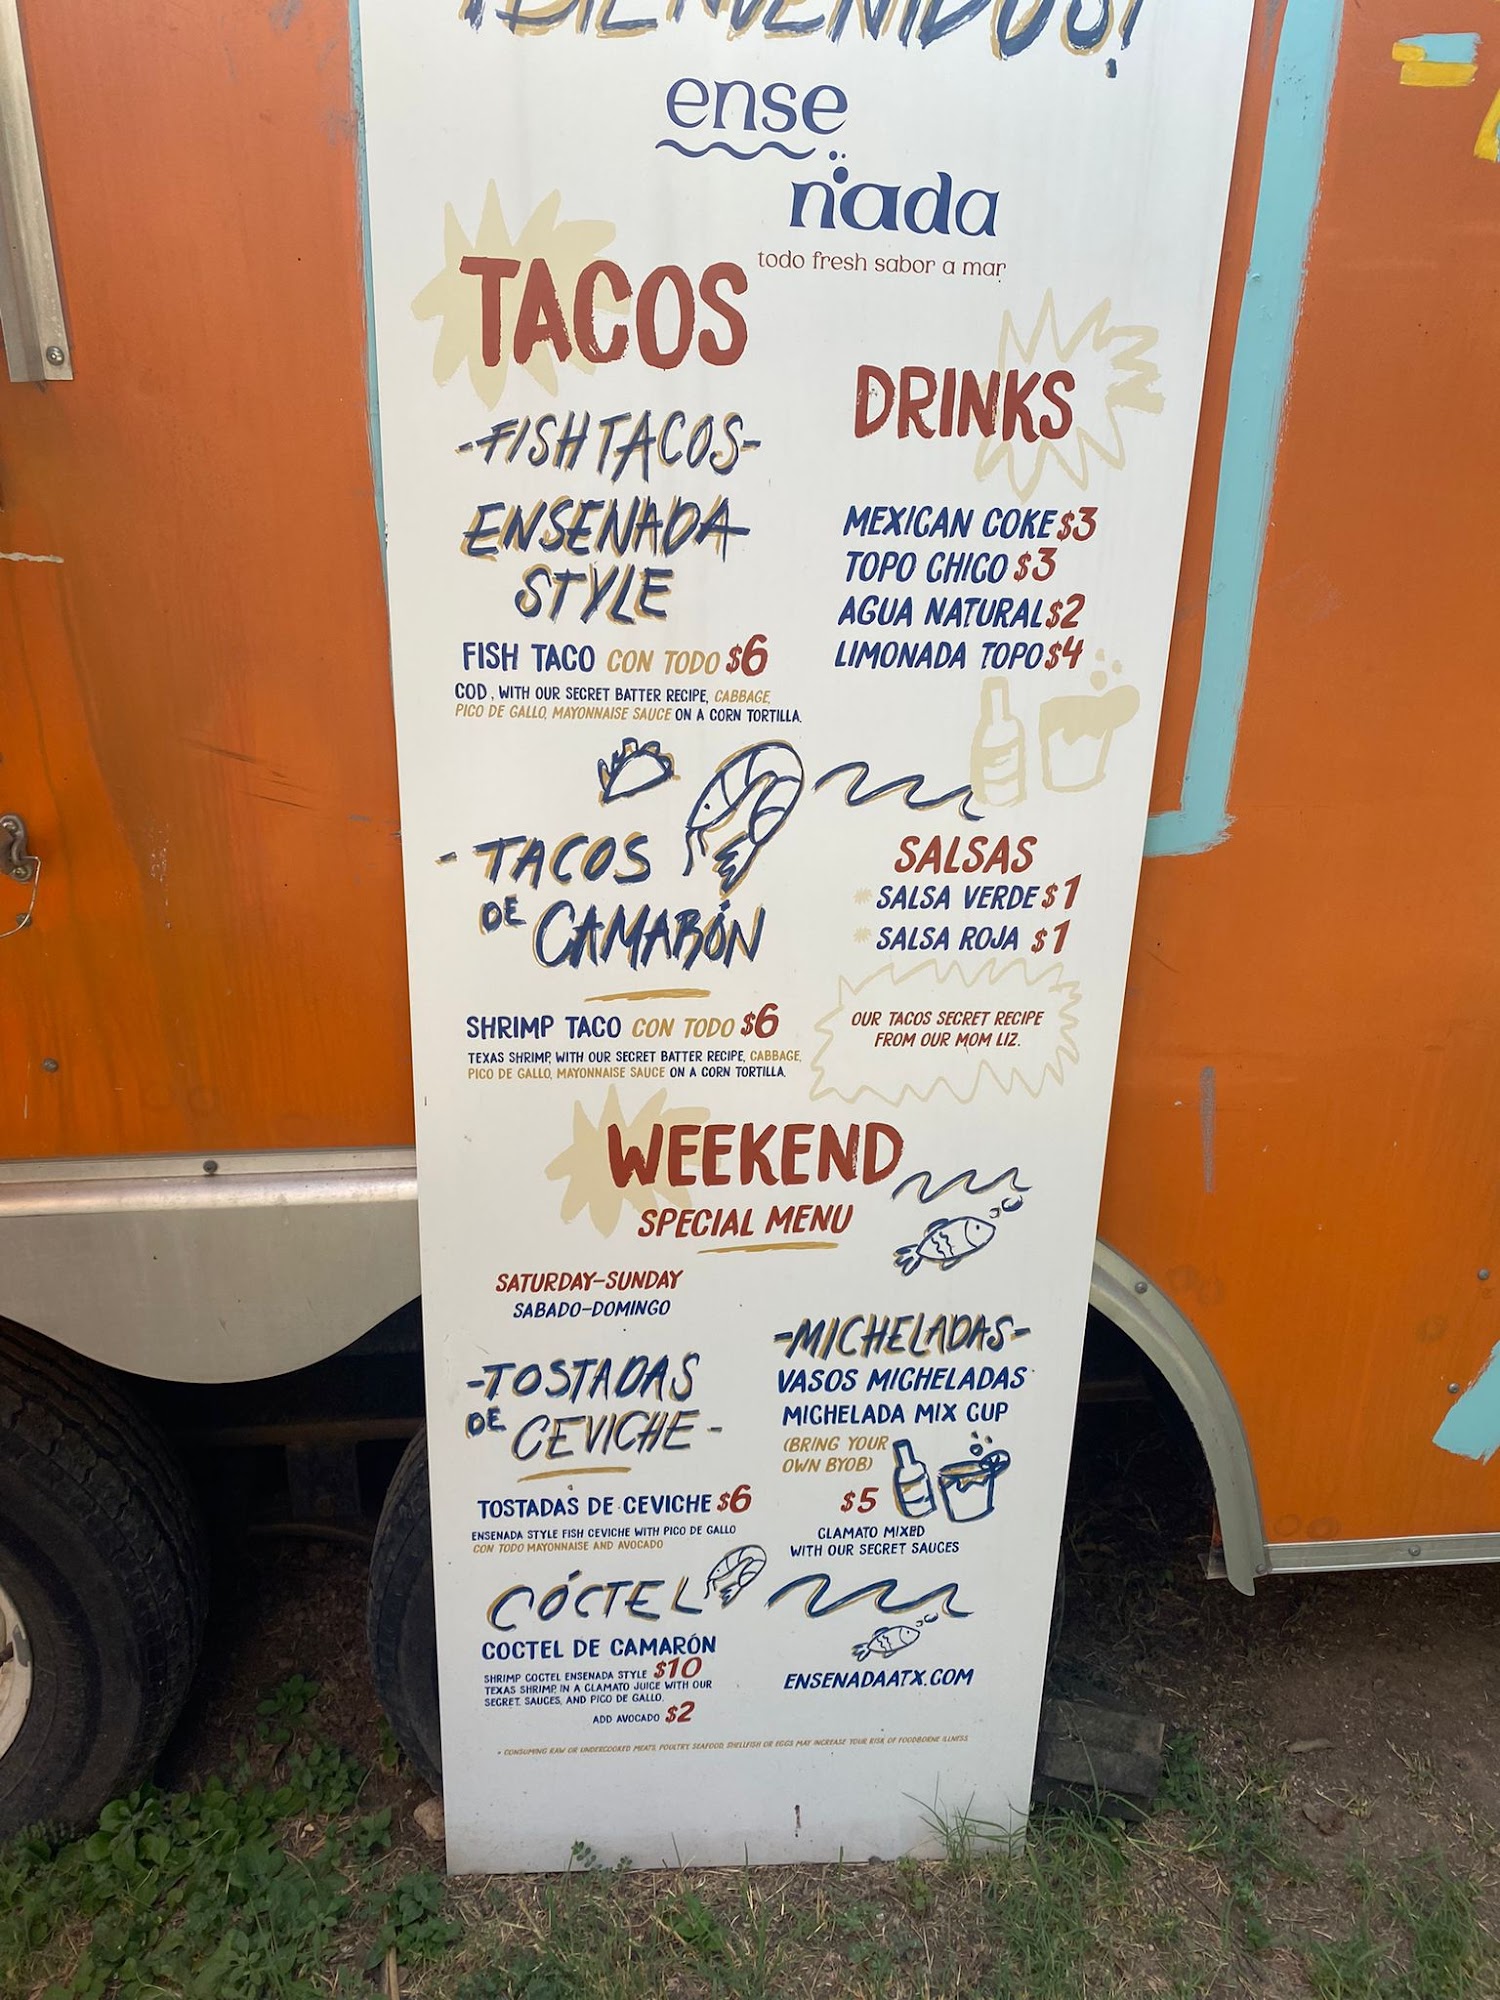 ¡BIENVENIDOS!
ense
nada
todo fresh sabor a mar
TACOS
-FISH TACOS-
ENSENADA
STYLE
FISH TACO CON TODO $6
COD, WITH OUR SECRET BATTER RECIPE, CABBAGE,
PICO DE GALLO, MAYONNAISE SAUCE ON A CORN TORTILLA.
- TACOS
DE CAMARÓN
SHRIMP TACO CON TODO $6
TEXAS SHRIMP, WITH OUR SECRET BATTER RECIPE, CABBAGE,
PICO DE GALLO, MAYONNAISE SAUCE ON A CORN TORTILLA.
DRINKS
MEXICAN COKE $3
TOPO CHICO $3
AGUA NATURAL $2
LIMONADA TOPO $4
SALSAS
SALSA VERDE $1
SALSA ROJA $1
OUR TACOS SECRET RECIPE
FROM OUR MOM LIZ.
WEEKEND
SPECIAL MENU
SATURDAY-SUNDAY
SABADO-DOMINGO
-TOSTADAS
DE CEVICHE-
TOSTADAS DE CEVICHE $6
ENSENADA STYLE FISH CEVICHE WITH PICO DE GALLO
CON TODO MAYONNAISE AND AVOCADO
CÓCTEL
COCTEL DE CAMARÓN
SHRIMP COCTEL ENSENADA STYLE $10
TEXAS SHRIMP, IN A CLAMATO JUICE WITH OUR
SECRET SAUCES, AND PICO DE GALLO.
ADD AVOCADO $2
-MICHELADAS-
VASOS MICHELADAS
MICHELADA MIX CUP
(BRING YOUR
OWN BYOB)
$5
CLAMATO MIXED
WITH OUR SECRET SAUCES
ENSENADAATX.COM
* CONSUMING RAW OR UNDERCOOKED MEATS, POULTRY, SEAFOOD, SHELLFISH OR EGGS MAY INCREASE YOUR RISK OF FOODBORNE ILLNESS